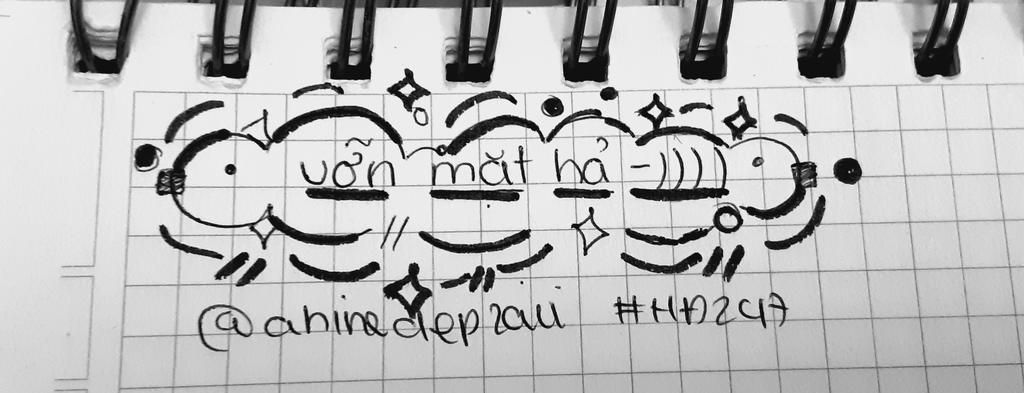 vỡn mặt hả -))))
@aninedepzaii #HD247